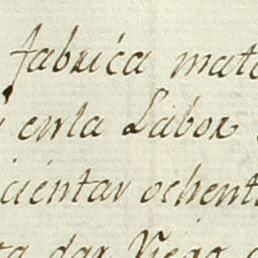 fabrica mate
enla Labor
cientas ochent
dar Riego